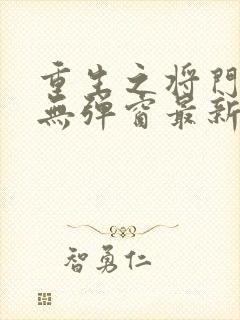 重生之将門
無彈窗最新
智勇仁